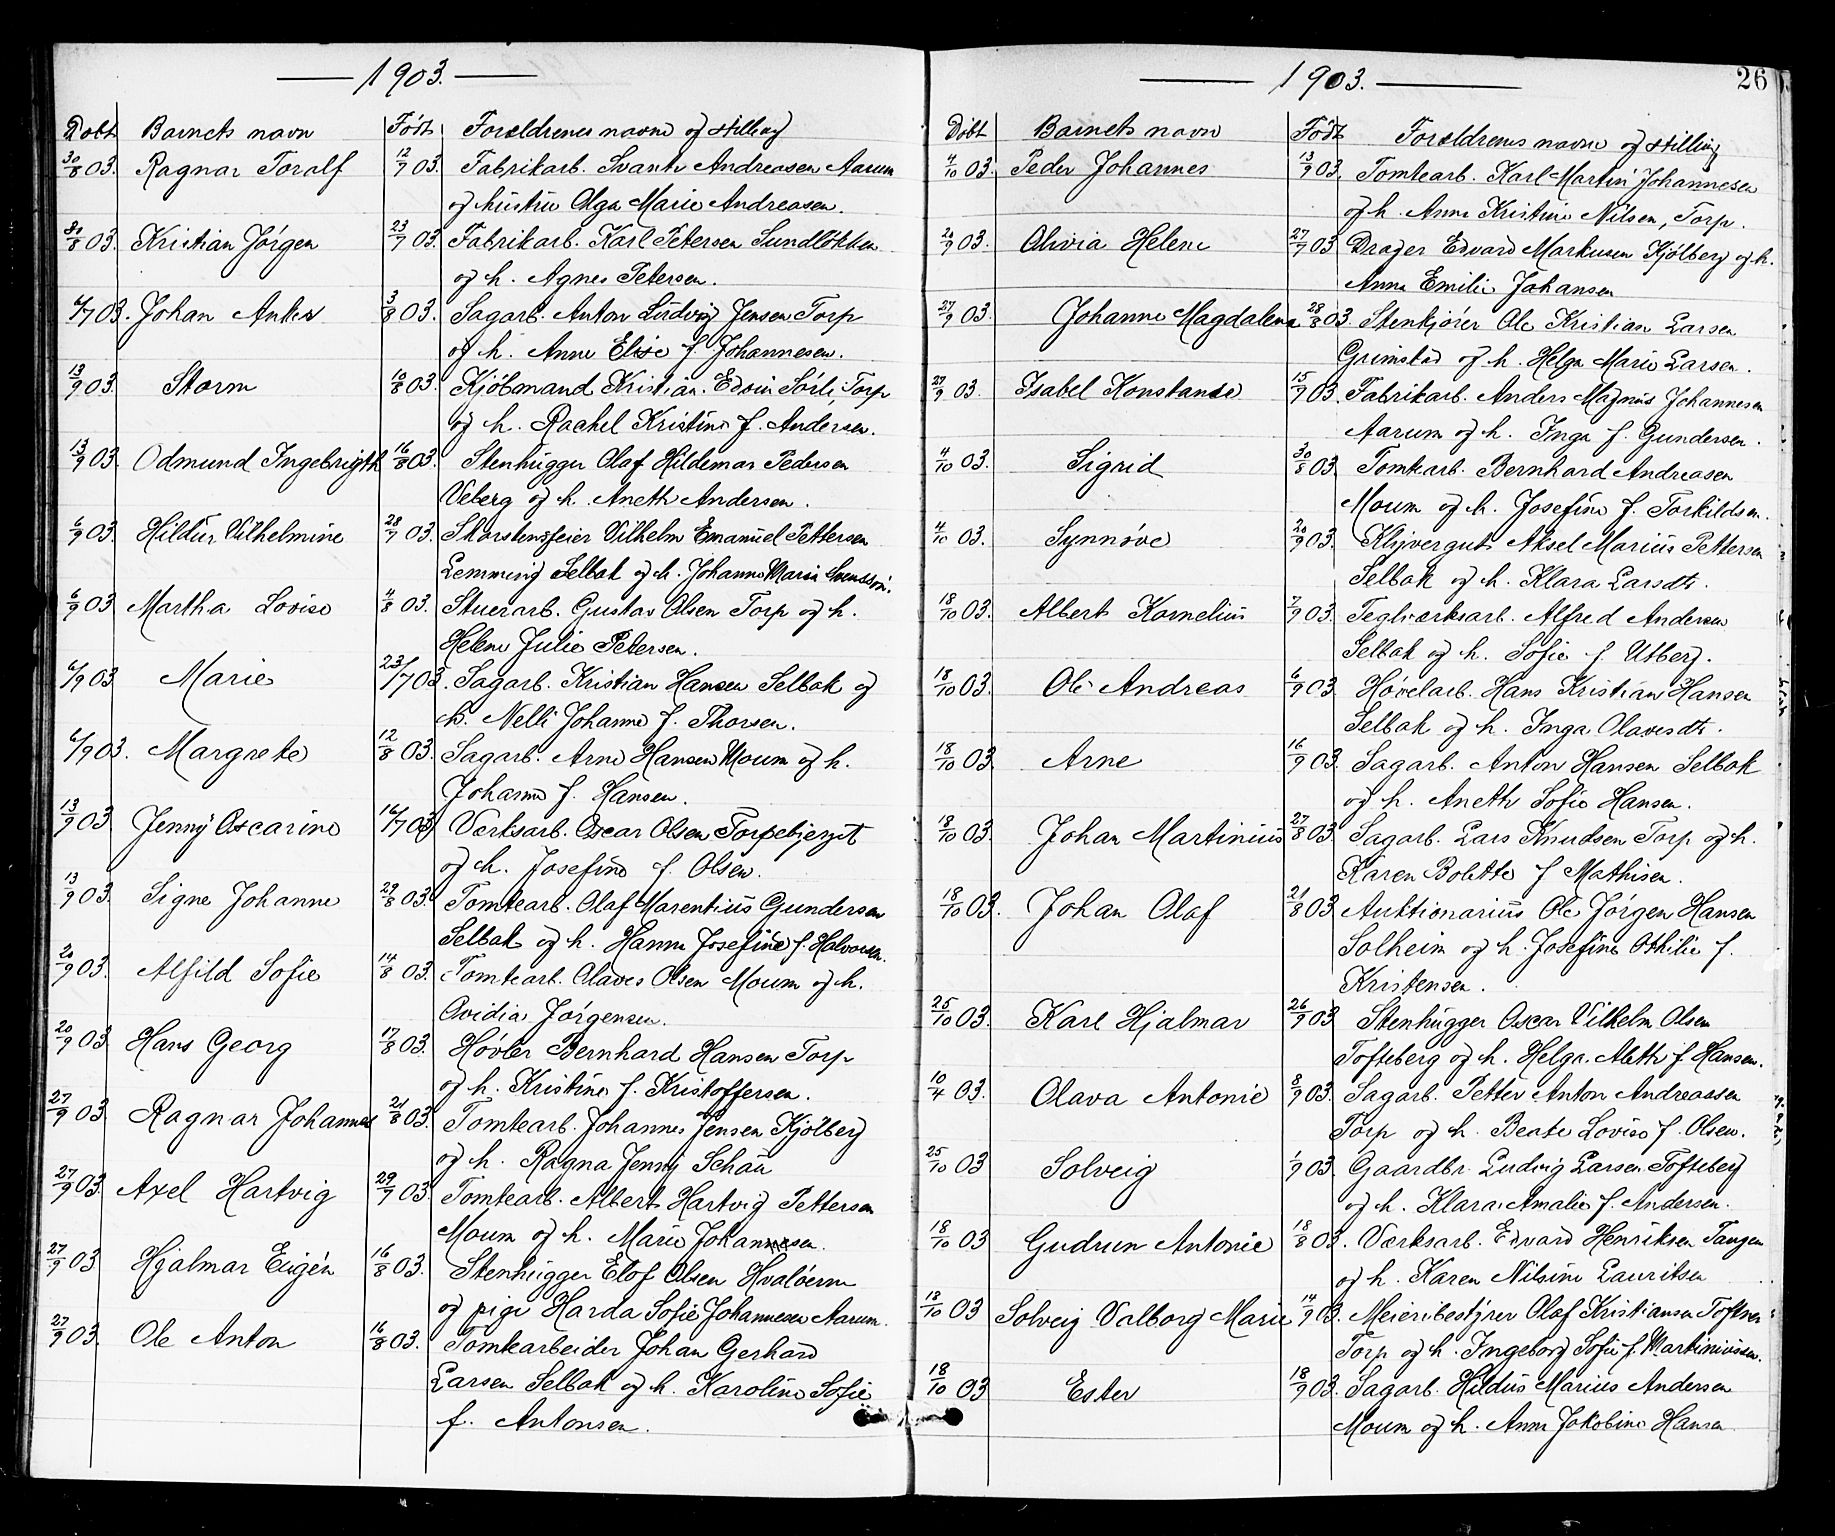 1903.
Døbt Barnets navn Født Forældrenes navne og stilling
30/8 03. Ragnar Toralf 12/7 03. Fabrikarb. Svante Andreasen Aarum
og hustru Olga Marie Andreasen.
30/8 03. Kristian Jørgen 23/7 03. Fabrikarb. Karl Petersen Sundløkken
og h. Agnes Petersen.
6/7 03. Johan Anker 3/8 03. Sagarb. Anton Ludvig Jensen Torp
og h. Anne Elise f. Johannesen.
13/9 03. Storm 10/8 03. Kjøbmand Kristian Edvin Sørli, Torp
og h. Rachel Kristine f. Andersen.
13/9 03. Odmund Ingebrigth 16/8 03. Stenhugger Olaf Hildemar Pedersen
Veberg og h. Aneth Andersen.
6/9 03. Hildur Vilhelmine 28/7 03. Skorstensfeier Vilhelm Emanuel Pettersen
Lemming Selbak og h. Johanne Maria Svensson.
6/9 03 Martha Lovise 4/8 03. Stuerarb. Gustav Olsen Torp og h.
Helene Julie Petersen.
6/9 03 Marie 23/7 03. Sagarb. Kristian Hansen Selbak og
h. Nelli Johanne f. Thorsen.
6/9 03. Margrete 12/8 03. Sagarb. Arne Hansen Moum og h.
Johanne f. Hansen.
13/9 03 Jenny Oscarine 16/7 03 Værksarb. Oscar Olsen Torpebjerget
og h. Josefine f. Olsen.
13/9 03. Signe Johanne 29/8 03. Tomtearb. Olaf Marentius Gundersen
Selbak og h. Hanna Josefine f. Halvorsen.
20/9 03. Alfild Sofie 14/8 03. Tomtearb. Olaves Olsen Moum og h.
Ovidia Jørgensen.
20/9 03 Hans Georg 17/8 03. Høvler Bernhard Hansen Torp
og h. Kristine f. Kristoffersen.
27/9 03 Ragnar Johannes 21/8 03. Tomtearb. Johannes Jensen Kjölberg
og h. Ragna Jenny Schau
27/9 03. Axel Hartvig 29/7 03. Tomtearb. Albert Hartvig Pettersen
Moum og h. Marie Johannesen.
27/9 03 Hjalmar Eugén 16/8 03. Stenhugger Elof Olsen Hvaløerne
og pige Harda Sofie Johannesen Aarum.
27/9 03. Ole Anton 16/8 03. Tomtearbeider Johan Gerhard
Larsen Selbak og h. Karoline Sofie
f. Antonsen.
1903. 26
Døbt Barnets navn Født Forældrenes navne og stilling
4/10 03. Peder Johannes 13/9 03. Tomtearb. Karl Martin Johannesen
og h. Anna Kristine Nilsen, Torp.
20/9 03. Olivia Helene 27/7 03 Drager Edvard Markusen Kjölberg og h.
Anna Emilie Johansen
27/9 03. Johanne Magdalena 28/8 03. Stenkjører Ole Kristian Larsen
Grimstad og h. Helga Marie Larsen.
27/9 03. Isabel Konstanse 15/9 03. Fabrikarb. Anders Magnus Johannesen
Aarum og h. Inga f. Gundersen.
4/10 03. Sigrid 30/8 03. Tomtearb. Bernhard Andreasen
Moum og h. Josefine f. Torkildsen.
4/10 03. Synnøve 20/9 03. Klyvergut Aksel Marius Pettersen
Selbak og h. Klara Larsdt.
18/10 03. Albert Kornelius 7/9 03. Teglværksarb. Alfred Andersen
Selbak og h. Sofie f. Utberg.
18/10 03. Ole Andreas 6/9 03. Høvelarb. Hans Kristian Hansen
Selbak og h. Inga Olavesdt.
18/10 03. Arne 16/9 03. Sagarb. Anton Hansen Selbak
og h. Aneth Sofie Hansen.
18/10 03. Johan Martinius 27/8 03. Sagarb. Lars Knudsen Torp og h.
Karen Bolette f Mathisen.
18/10 03. Johan Olaf 21/8 03 Auktionarius Ole Jørgen Hansen
Solheim og h. Josefine Othilie f.
Kristensen.
25/10 03. Karl Hjalmar 26/9 03 Stenhugger Oscar Vilhelm Olsen
Tofteberg og h. Helga Aleth f Hansen.
10/4 03. Olava Antonie 8/9 03. Sagarb. Petter Anton Andreassen
Torp og h. Beate Lovise f. Olsen.
25/10 03 Solveig 1/9 03. Gaardbr. Ludvig Larsen Tofteberg
og h. Klara Amalie f. Andersen.
18/10 03 Gudrun Antonie 18/8 03. Værksarb. Edvard Henriksen Tangen
og h. Karen Nilsine Lauritsen
18/10 03 Solveig Valborg Marie 14/9 03. Meieribestyrer Olaf Kristiansen Toftner
Torp og h. Ingeborg Sofie f. Martiniussen.
18/10 03 Ester 18/9 03. Sagarb. Hildus Marius Andersen
Moum og h. Anna Jakobine Hansen